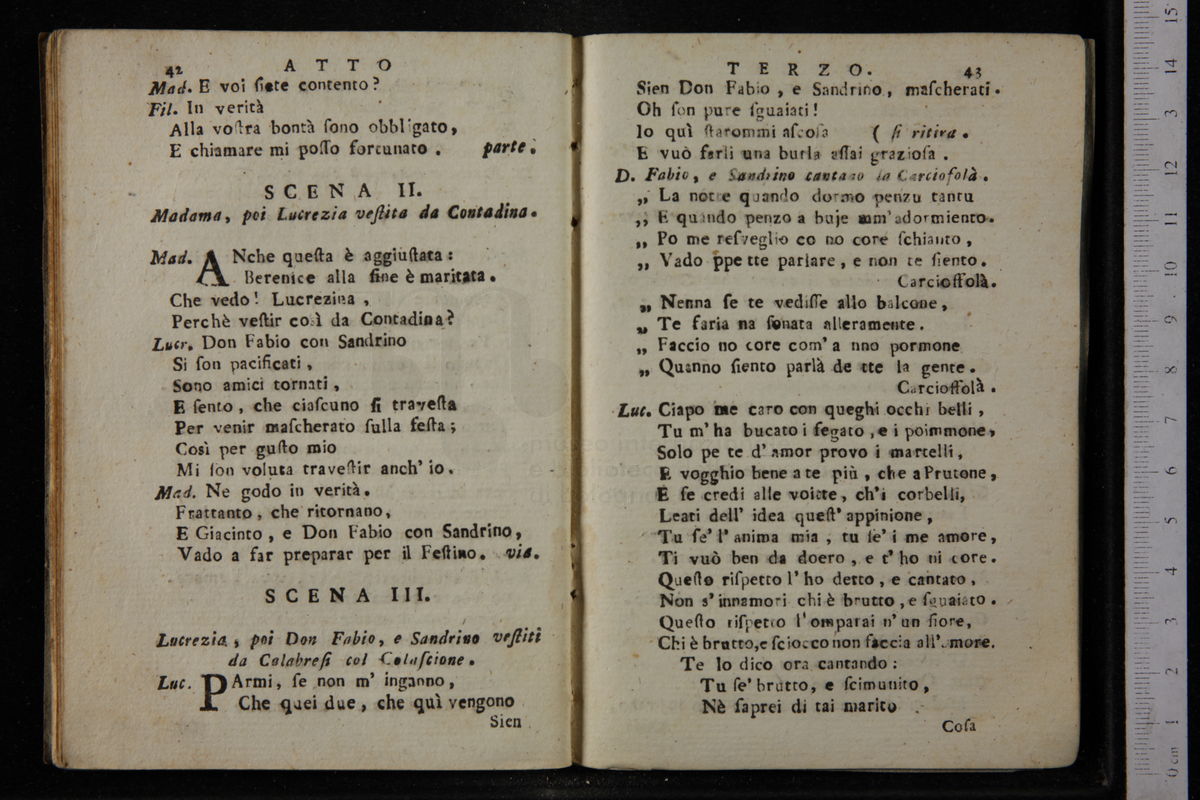 42 ATTO
Mad. E voi ſiete contento?
Fil. In verità
Alla voſtra bontà ſono obbligato,
E chiamare mi poſſo fortunato. parte.
SCENA II.
Madama, poi Lucrezia veſtita da Contadina.
Mad. ANche queſta è aggiuſtata:
Berenice alla fine è maritata.
Che vedo! Lucrezina,
Perchè veſtir così da Contadina?
Lucr. Don Fabio con Sandrino
Si ſon pacificati,
Sono amici tornati,
E ſento, che ciaſcuno ſi traveſta
Per venir maſcherato ſulla feſta;
Così per guſto mio
Mi ſon voluta traveſtir anch' io.
Mad. Ne godo in verità.
Frattanto, che ritornano,
E Giacinto, e Don Fabio con Sandrino,
Vado a far preparar per il Feſtino. via.
SCENA III.
Lucrezia, poi Don Fabio, e Sandrino veſtiti
da Calabreſi col Colaſcione.
Luc. PArmi, ſe non m' inganno,
Che quei due, che quì vengono
Sien
TERZO. 43
Sien Don Fabio, e Sandrino, maſcherati.
Oh ſon pure ſguaiati!
Io quì ſtarommi aſcoſa ( ſi ritira.
E vuò farli una burla aſſai grazioſa.
D. Fabio, e Sandrino cantano la Carciofolà.
„ La notte quando dormo penzu tantu
„ E quando penzo a buje mm' adormiento.
„ Po me reſveglio co no core ſchianto,
„ Vado ppe tte parlare, e non te ſiento.
Carcioffolà.
„ Nenna ſe te vediſſe allo balcone,
„ Te faria na ſonata alleramente.
„ Faccio no core com' a nno pormone
„ Quanno ſiento parlà de tte la gente.
Carcioffolà.
Luc. Ciapo me caro con queghi occhi belli,
Tu m' ha bucato i fegato, e i poimmone,
Solo pe te d' amor provo i martelli,
E vogghio bene a te più, che a Prutone,
E ſe credi alle voiate, ch'i corbelli,
Leati dell' idea queſt' appinione,
Tu ſe' l' anima mia, tu ſe' i me amore,
Ti vuò ben da doero, e t' ho ni core.
Queſto riſpetto l' ho detto, e cantato,
Non s' innamori chi è brutto, e ſguaiato.
Queſto riſpetto l' omparai n' un fiore,
Chi è brutto, e ſciocco non faccia all' amore.
Te lo dico ora cantando:
Tu ſe' brutto, e ſcimunito,
Nè ſaprei di tai marito
Coſa